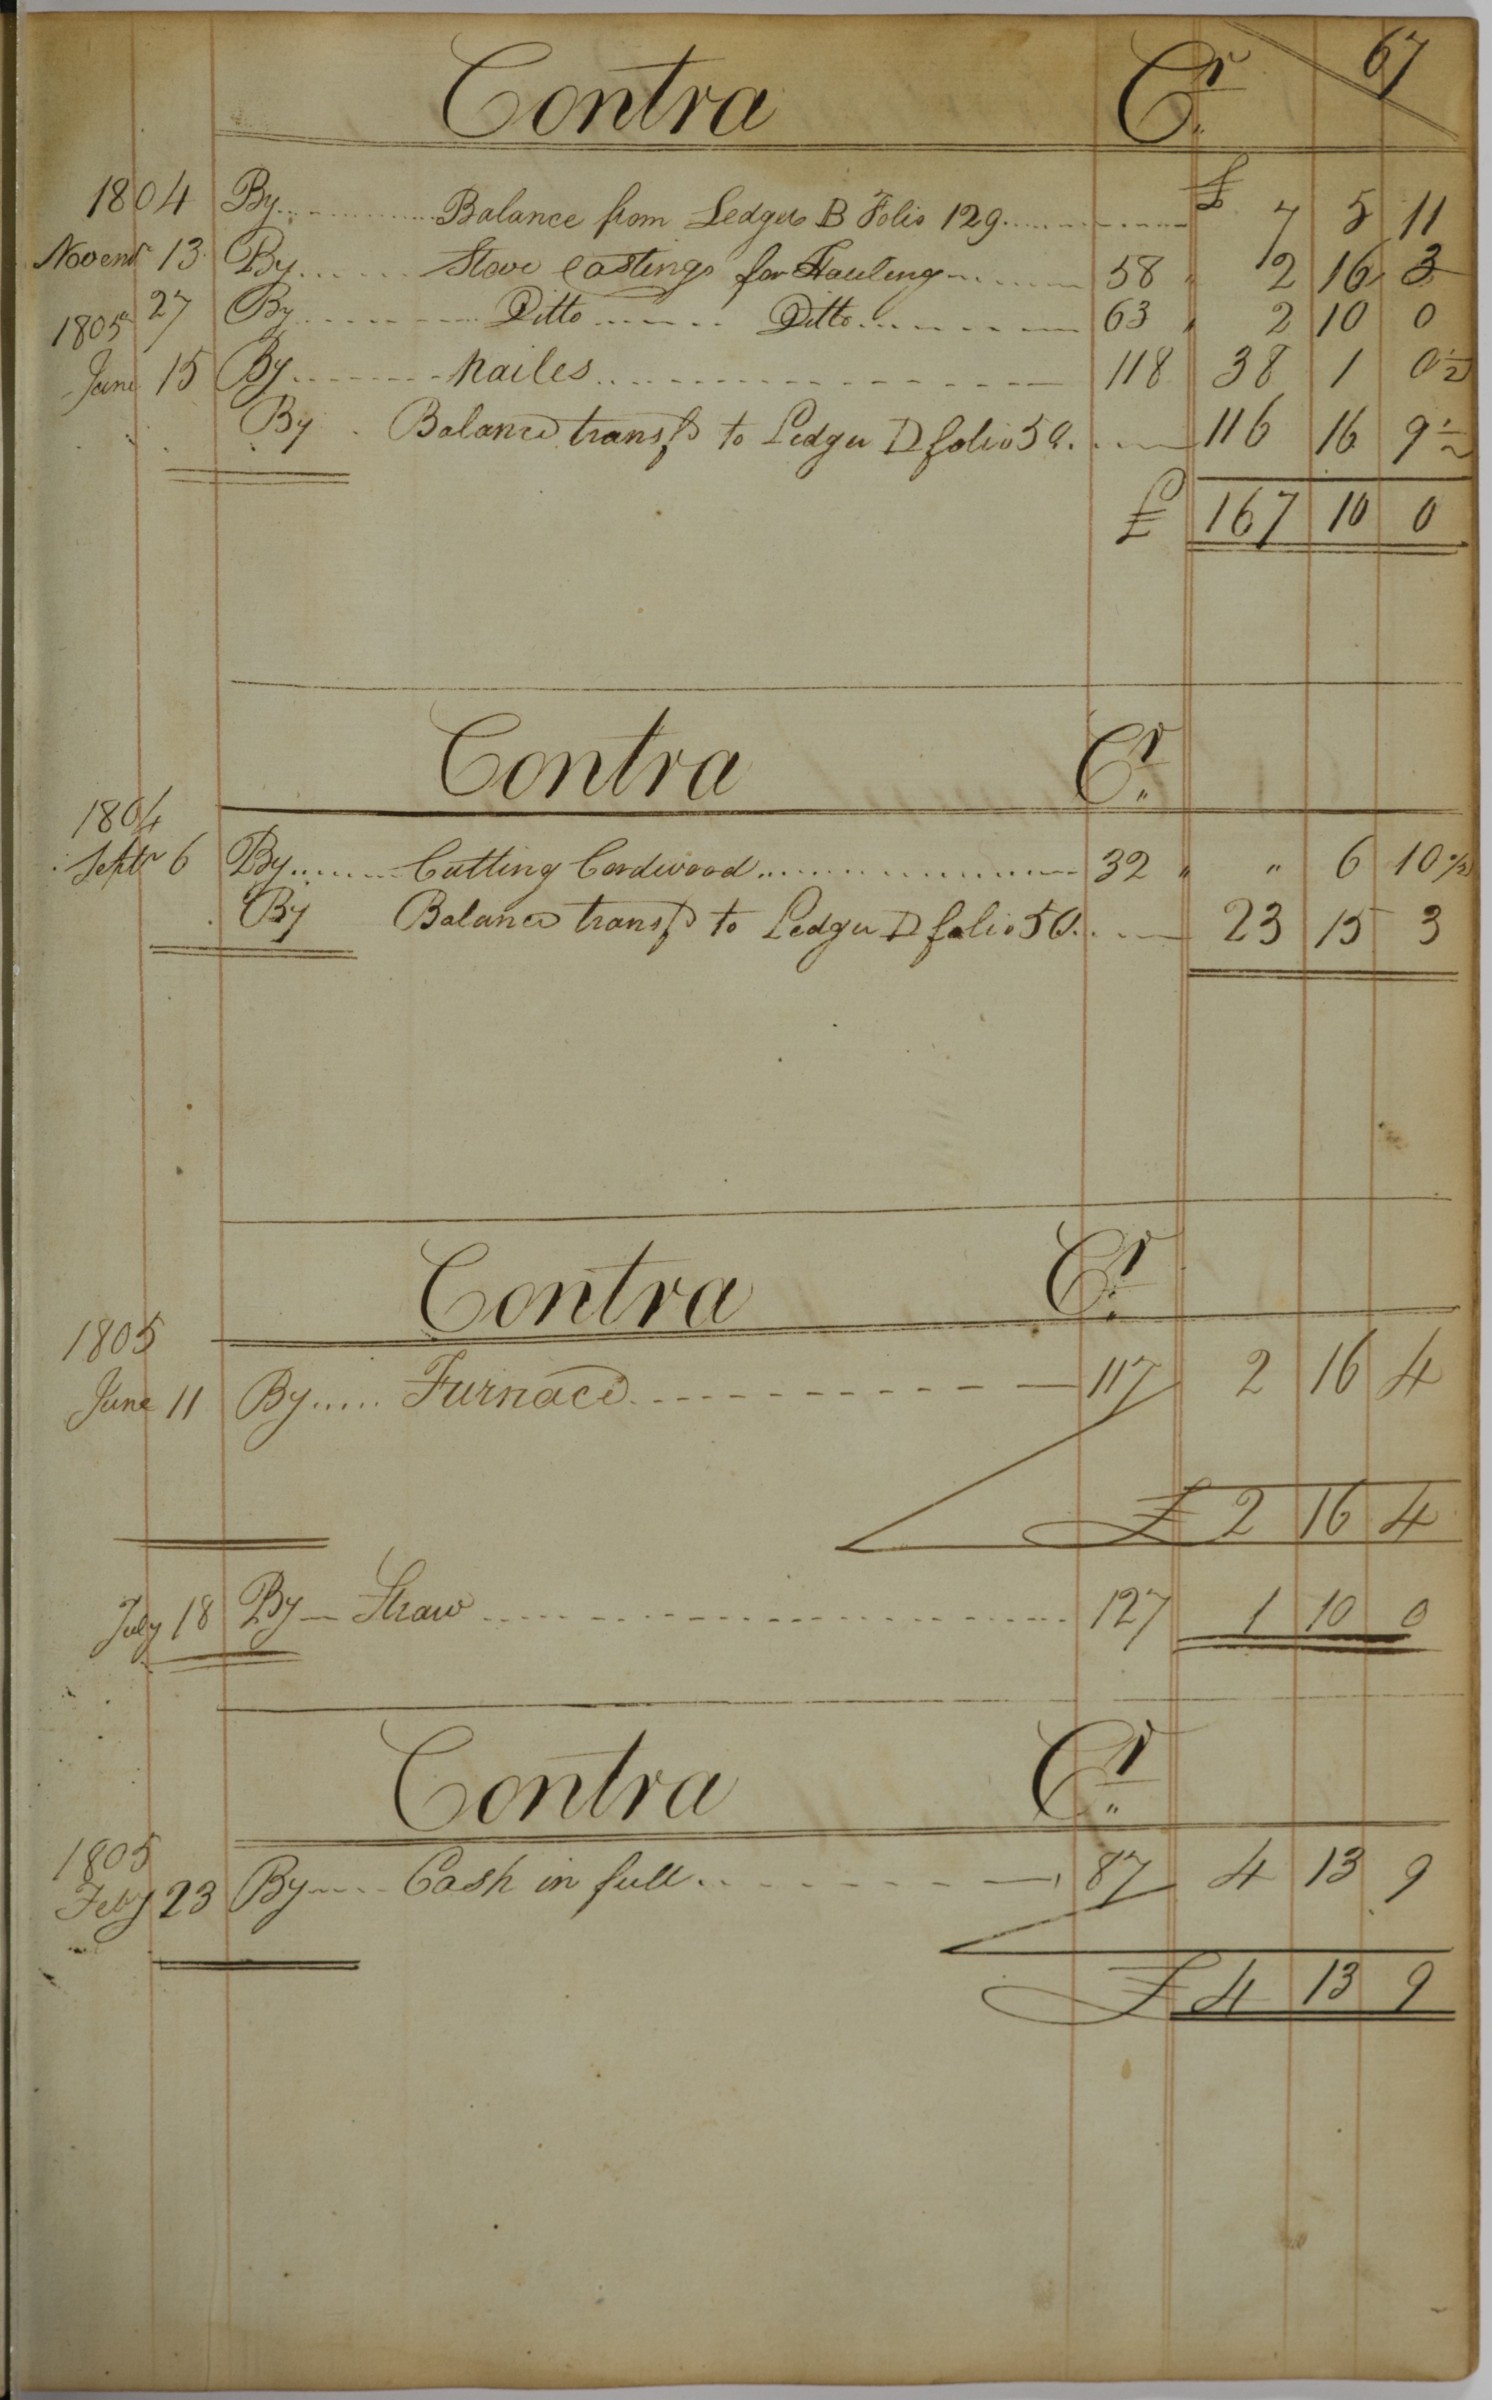 67
Contra Cr
1804 By Balance from Ledger B Folio 129 £ 7 5 11
Novemr 13 By Stove Castings for Hauling 58 " 2 16 3
27 By Ditto Ditto 63 " 2 10 0
1805
June 15 By Nailes 118 38 1 0½
By Balance transfd to Ledger D folio 50 116 16 9½
£ 167 10 0
Contra Cr
1804
Septr 6 By Cutting Cordwood 32 " " 6 10½
By Balance transfd to Ledger D folio 50 23 15 3
Contra Cr
1805
June 11 By Furnace 117 2 16 4
£ 2 16 4
July 18 By Straw 127 1 10 0
Contra Cr
1805
Feby 23 By Cash in full 87 4 13 9
£ 4 13 9